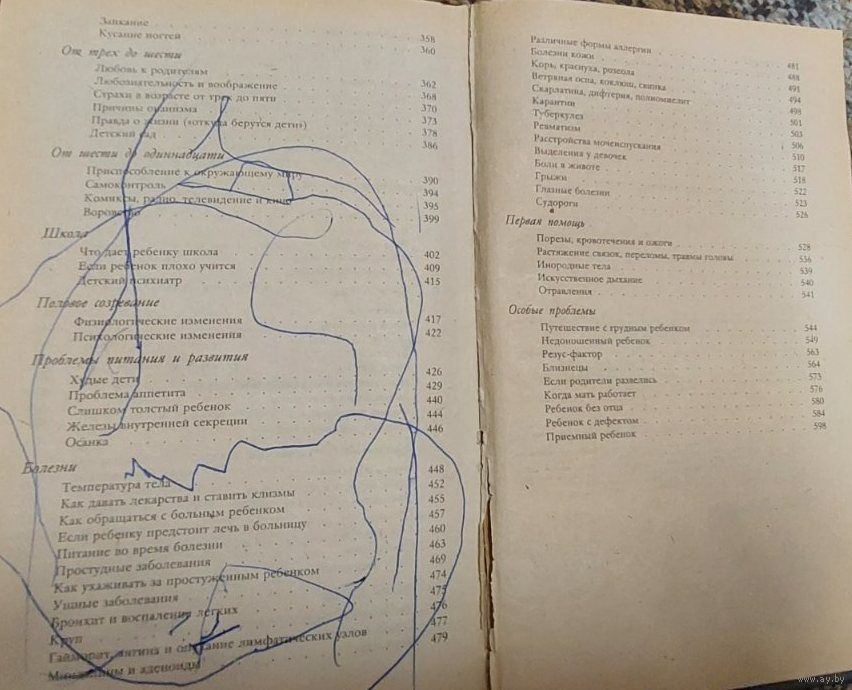 Заикание 358
Кусание ногтей 360
От трех до шести
Любовь к родителям 362
Любознательность и воображение 368
Страхи в возрасте от трех до пяти 370
Причины онанизма 373
Правда о жизни («откуда берутся дети») 378
Детский сад 386
От шести до одиннадцати
Приспособление к окружающему миру 390
Самоконтроль 394
Комиксы, радио, телевидение и кино 395
Воровство 399
Школа
Что дает ребенку школа 402
Если ребенок плохо учится 409
Детский психиатр 415
Половое созревание
Физиологические изменения 417
Психологические изменения 422
Проблемы питания и развития
Худые дети 426
Проблема аппетита 429
Слишком толстый ребенок 440
Железы внутренней секреции 444
Осанка 446
Болезни
Температура тела 448
Как давать лекарства и ставить клизмы 452
Как обращаться с больным ребенком 455
Если ребенку предстоит лечь в больницу 457
Питание во время болезни 460
Простудные заболевания 463
Как ухаживать за простуженным ребенком 469
Ушные заболевания 474
Бронхит и воспаления легких 475
Круп 476
Гайморит, ангина и опухание лимфатических узлов 477
Миндалины и аденоиды 479
Различные формы аллергии 481
Болезни кожи 488
Корь, краснуха, розеола 491
Ветряная оспа, коклюш, свинка 494
Скарлатина, дифтерия, полиомиелит 498
Карантин 501
Туберкулез 503
Ревматизм 506
Расстройства мочеиспускания 510
Выделения у девочек 517
Боли в животе 518
Грыжи 522
Глазные болезни 523
Судороги 526
Первая помощь
Порезы, кровотечения и ожоги 528
Растяжение связок, переломы, травмы головы 536
Инородные тела 539
Искусственное дыхание 540
Отравления 541
Особые проблемы
Путешествие с грудным ребенком 544
Недоношенный ребенок 549
Резус-фактор 563
Близнецы 564
Если родители развелись 573
Когда мать работает 576
Ребенок без отца 580
Ребенок с дефектом 584
Приемный ребенок 598
www.ay.by